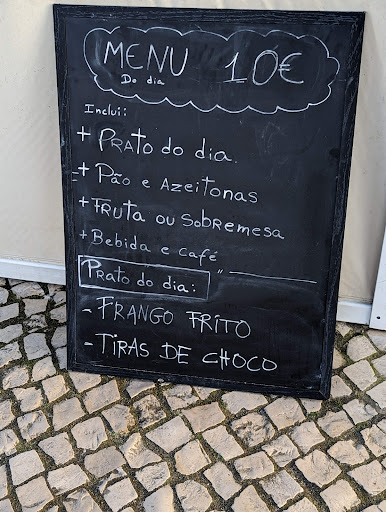 MENU 10€
Do dia
Inclui:
+ PRATO do dia.
+ Pão e AZEITONAS
+ FRUTA ou SOBREMESA
+ Bebida e café
Prato do dia:
- FRANGO FRITO
- TIRAS DE CHOCO